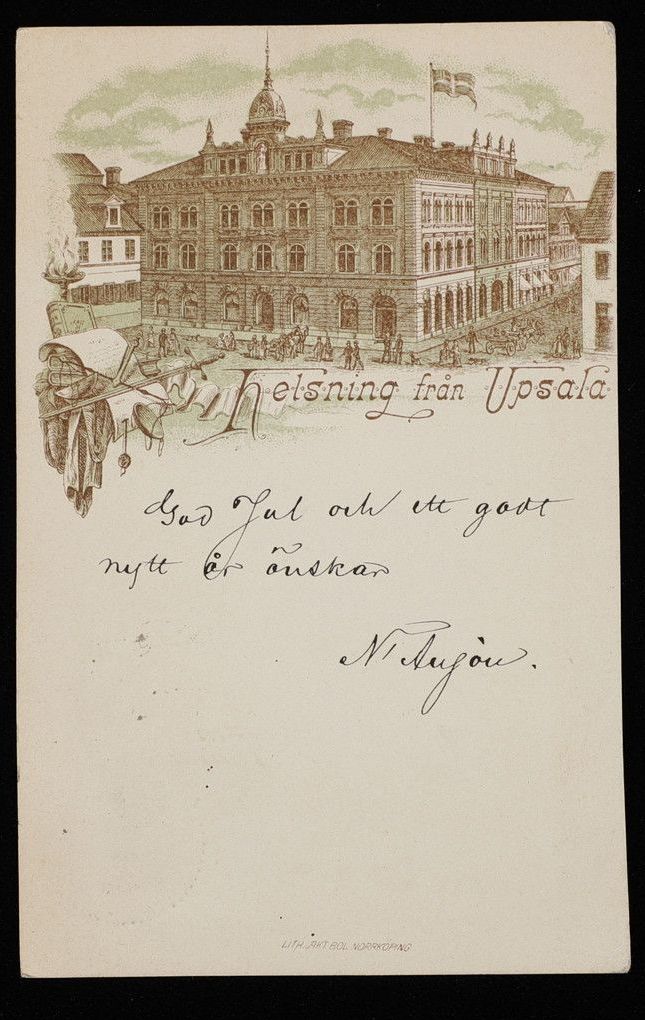 Helsning från Upsala
God Jul och ett godt
nytt år önskar
N Anjou.
LITH. AKT. BOL. NORRKÖPING